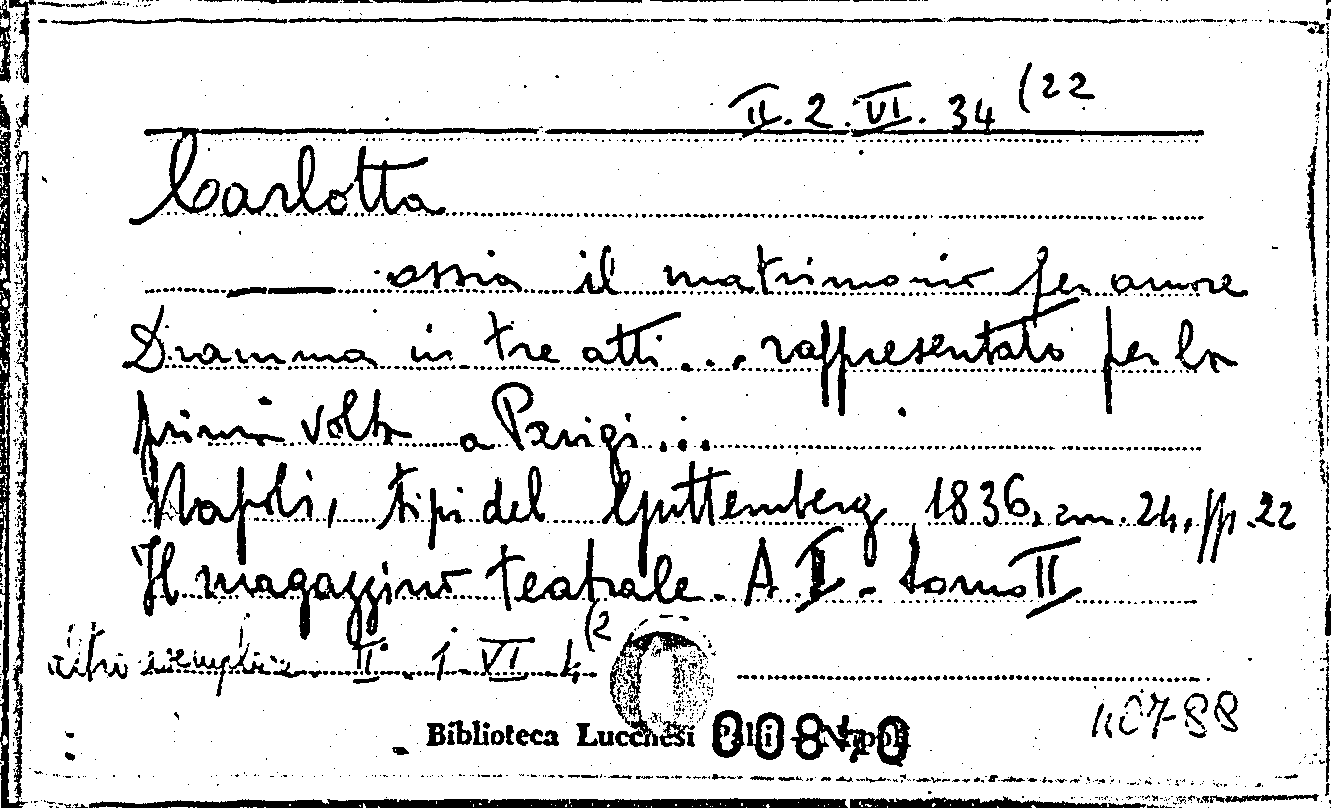 II. 2. VI. 34 (22
Carlotta
ossia il matrimonio per amore
Dramma in tre atti... rappresentato per la
prima volta a Parigi...
Napoli, tipi del Guttemberg, 1836, cm. 24, pp. 22
Il magazzino teatrale. A. II - tomo II
altri esemplari. II. 1. VI. 4 (2
Biblioteca Lucchesi Palli - Napoli
00840